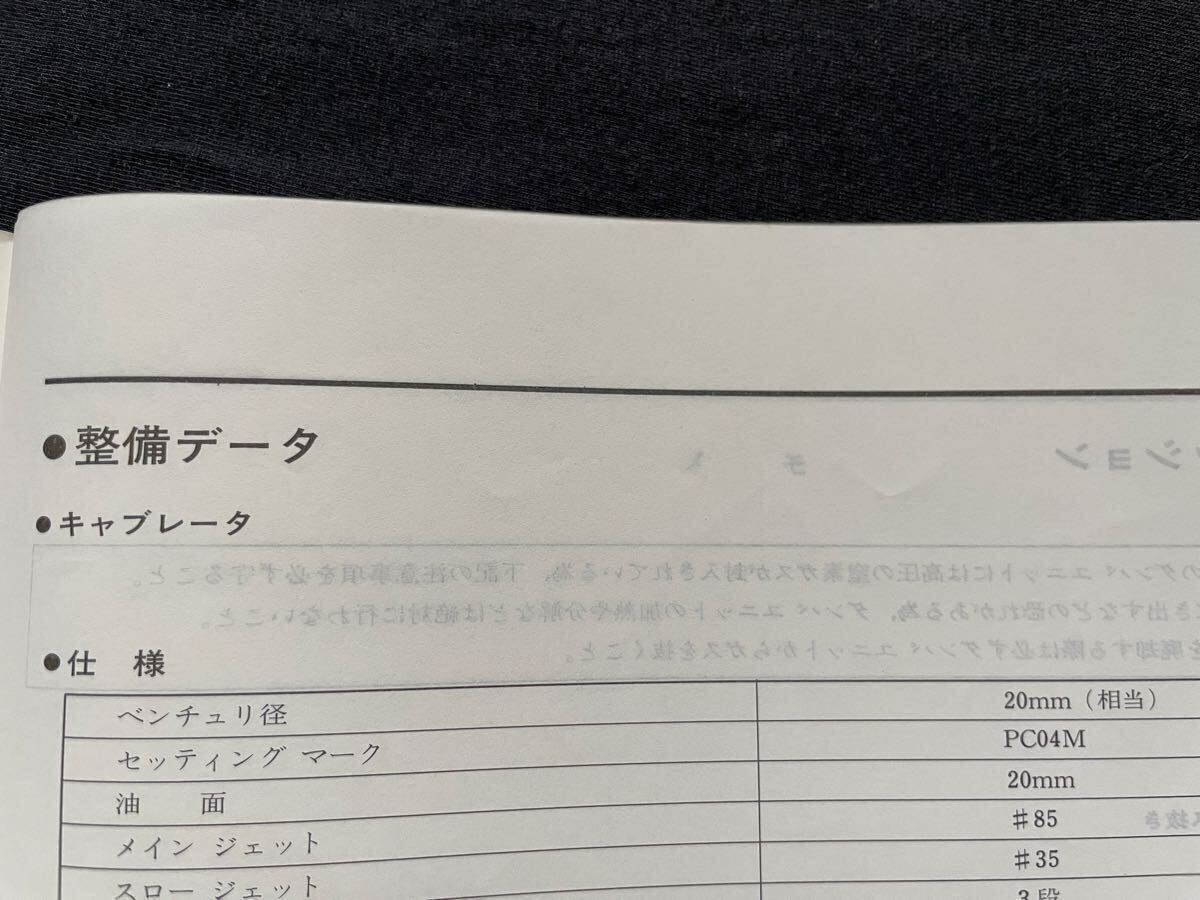 ●整備データ
●キャブレータ
●仕 様
ベンチュリ径 20mm（相当）
セッティング マーク PC04M
油 面 20mm
メイン ジェット ♯85
スロー ジェット ♯35
3段